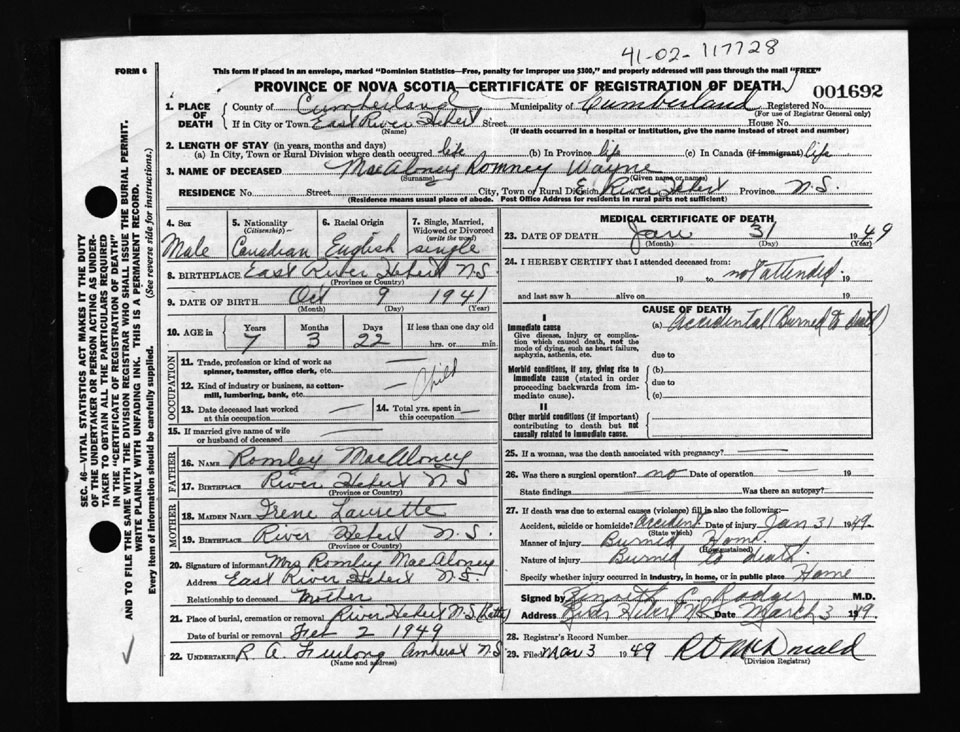 41-02-117728
FORM 6
This form if placed in an envelope, marked "Dominion Statistics—Free, penalty for improper use $300," and properly addressed will pass through the mail "FREE"
PROVINCE OF NOVA SCOTIA—CERTIFICATE OF REGISTRATION OF DEATH
001692
1. PLACE OF DEATH
County of Cumberland Municipality of Cumberland Registered No.
(For use of Registrar General only)
If in City or Town East River Hebert Street House No.
(Name) (If death occurred in a hospital or institution, give the name instead of street and number)
2. LENGTH OF STAY (in years, months and days)
(a) In City, Town or Rural Division where death occurred life (b) In Province life (c) In Canada (if immigrant) life
3. NAME OF DECEASED MacAloney Romney Wayne
(Surname) (Given name or names)
RESIDENCE No. Street City, Town or Rural Division E. River Hebert Province N.S.
(Residence means usual place of abode. Post Office Address for residents in rural parts not sufficient)
4. Sex Male
5. Nationality (Citizenship) Canadian
6. Racial Origin English
7. Single, Married, Widowed or Divorced (write the word) single
8. BIRTHPLACE East River Hebert N.S.
(Province or Country)
9. DATE OF BIRTH Oct 9 1941
(Month) (Day) (Year)
10. AGE in Years 7 Months 3 Days 22 If less than one day old hrs. or min.
OCCUPATION
11. Trade, profession or kind of work as spinner, teamster, office clerk, etc. —
12. Kind of industry or business, as cotton-mill, lumbering, bank, etc. — Child
13. Date deceased last worked at this occupation —
14. Total yrs. spent in this occupation —
15. If married give name of wife or husband of deceased —
FATHER
16. NAME Romley MacAloney
17. BIRTHPLACE River Hebert N S
(Province or Country)
MOTHER
18. MAIDEN NAME Irene Laurette
19. BIRTHPLACE River Hebert N.S.
(Province or Country)
20. Signature of informant Mrs Romley MacAloney
Address East River Hebert N.S.
Relationship to deceased Mother
21. Place of burial, cremation or removal River Hebert N.S.
Date of burial or removal Feb 2 1949
22. UNDERTAKER R. A. Furlong Amherst N.S.
(Name and address)
MEDICAL CERTIFICATE OF DEATH
23. DATE OF DEATH Jan 31 1949
(Month) (Day) (Year)
24. I HEREBY CERTIFY that I attended deceased from:
19 to not attended 19
and last saw h alive on 19
CAUSE OF DEATH
I
Immediate cause
Give disease, injury or complication which caused death, not the mode of dying, such as heart failure, asphyxia, asthenia, etc.
(a) Accidental (Burned to death)
due to
Morbid conditions, if any, giving rise to immediate cause (stated in order proceeding backwards from immediate cause).
(b)
due to
(c)
II
Other morbid conditions (if important) contributing to death but not causally related to immediate cause.
25. If a woman, was the death associated with pregnancy? —
26. Was there a surgical operation? no Date of operation — 19
State findings — Was there an autopsy?
27. If death was due to external causes (violence) fill in also the following:—
Accident, suicide or homicide? Accident Date of injury Jan 31 1949.
(State which)
Manner of injury Burned Home.
(How sustained)
Nature of injury Burned to death.
Specify whether injury occurred in industry, in home, or in public place Home
Signed by Kenneth C. Rodger M.D.
Address River Hebert N.S. Date March 3 1949.
28. Registrar's Record Number
29. Filed Mar 3 1949 R D McDonald
(Division Registrar)
SEC. 46—VITAL STATISTICS ACT MAKES IT THE DUTY
OF THE UNDERTAKER OR PERSON ACTING AS UNDER-
TAKER TO OBTAIN ALL THE PARTICULARS REQUIRED
IN THE "CERTIFICATE OF REGISTRATION OF DEATH"
AND TO FILE THE SAME WITH THE DIVISION REGISTRAR WHO SHALL ISSUE THE BURIAL PERMIT.
WRITE PLAINLY WITH UNFADING INK. THIS IS A PERMANENT RECORD.
Every item of information should be carefully supplied. (See reverse side for instructions.)